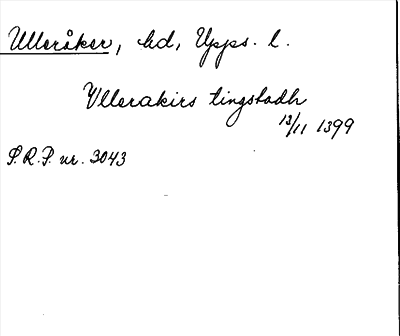 Ulleråker, hd, Upps. l.
Yllerakirs tingstadh
13/11 1399
S.R.P. nr. 3043